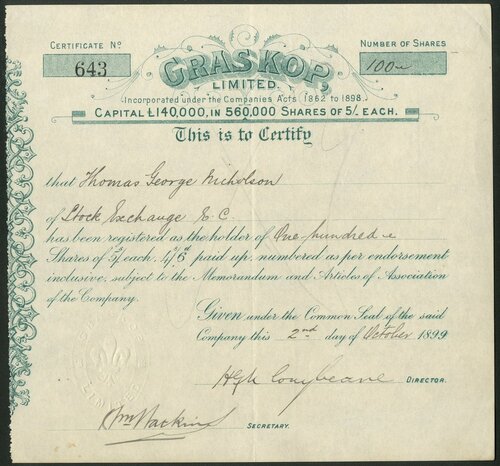 CERTIFICATE No
643
NUMBER OF SHARES
100
GRASKOP,
LIMITED.
Incorporated under the Companies Acts, 1862 to 1898.
CAPITAL £140,000, IN 560,000 SHARES OF 5/- EACH.
This is to Certify
that Thomas George Nicholson
of Stock Exchange E.C.
has been registered as the holder of One hundred
Shares of 5/ each, 4/6 paid up, numbered as per endorsement
inclusive, subject to the Memorandum and Articles of Association
of the Company.
Given under the Common Seal of the said
Company this 2nd day of October 1899
DIRECTOR.
SECRETARY.
LIMITED